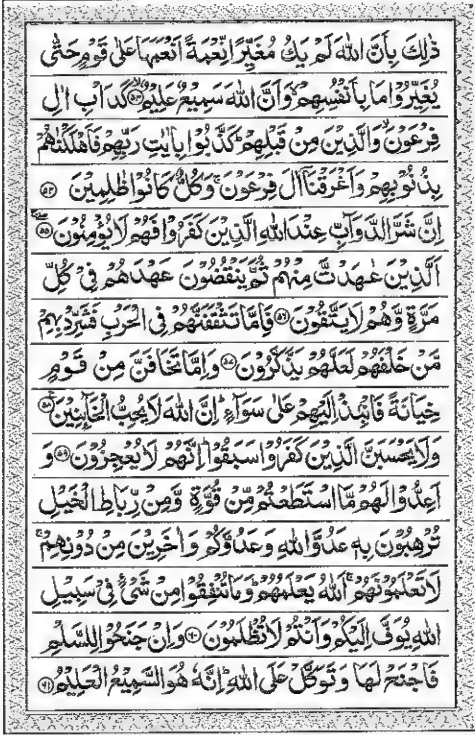 ذٰلِكَ بِاَنَّ اللّٰهَ لَمْ يَكُ مُغَيِّرًا نِّعْمَةً اَنْعَمَهَا عَلٰى قَوْمٍ حَتّٰى
يُغَيِّرُوْا مَا بِاَنْفُسِهِمْ ۙ وَاَنَّ اللّٰهَ سَمِيْعٌ عَلِيْمٌ ۙ‏﴿۵۳﴾ كَدَاْبِ اٰلِ
فِرْعَوْنَ ۙ وَالَّذِيْنَ مِنْ قَبْلِهِمْ ؕ كَذَّبُوْا بِاٰيٰتِ رَبِّهِمْ فَاَهْلَكْنٰهُمْ
بِذُنُوْبِهِمْ وَاَغْرَقْنَاۤ اٰلَ فِرْعَوْنَ ۚ وَكُلٌّ كَانُوْا ظٰلِمِيْنَ ﴿۵۴﴾
اِنَّ شَرَّ الدَّوَآبِّ عِنْدَ اللّٰهِ الَّذِيْنَ كَفَرُوْا فَهُمْ لَا يُؤْمِنُوْنَ ۖۚ ﴿۵۵﴾
اَلَّذِيْنَ عٰهَدْتَّ مِنْهُمْ ثُمَّ يَنْقُضُوْنَ عَهْدَهُمْ فِيْ كُلِّ
مَرَّةٍ وَّهُمْ لَا يَتَّقُوْنَ ﴿۵۶﴾ فَاِمَّا تَثْقَفَنَّهُمْ فِى الْحَرْبِ فَشَرِّدْ بِهِمْ
مَّنْ خَلْفَهُمْ لَعَلَّهُمْ يَذَّكَّرُوْنَ ﴿۵۷﴾ وَاِمَّا تَخَافَنَّ مِنْ قَوْمٍ
خِيَانَةً فَانْۢبِذْ اِلَيْهِمْ عَلٰى سَوَآءٍ ؕ اِنَّ اللّٰهَ لَا يُحِبُّ الْخَآئِنِيْنَ ﴿۵۸﴾
وَلَا يَحْسَبَنَّ الَّذِيْنَ كَفَرُوْا سَبَقُوْا ؕ اِنَّهُمْ لَا يُعْجِزُوْنَ ﴿۵۹﴾ وَ
اَعِدُّوْا لَهُمْ مَّا اسْتَطَعْتُمْ مِّنْ قُوَّةٍ وَّمِنْ رِّبَاطِ الْخَيْلِ
تُرْهِبُوْنَ بِهٖ عَدُوَّ اللّٰهِ وَعَدُوَّكُمْ وَاٰخَرِيْنَ مِنْ دُوْنِهِمْ ۚ
لَا تَعْلَمُوْنَهُمْ ۚ اَللّٰهُ يَعْلَمُهُمْ ؕ وَمَا تُنْفِقُوْا مِنْ شَيْءٍ فِيْ سَبِيْلِ
اللّٰهِ يُوَفَّ اِلَيْكُمْ وَاَنْتُمْ لَا تُظْلَمُوْنَ ﴿۶۰﴾ وَاِنْ جَنَحُوْا لِلسَّلْمِ
فَاجْنَحْ لَهَا وَتَوَكَّلْ عَلَى اللّٰهِ ؕ اِنَّهٗ هُوَ السَّمِيْعُ الْعَلِيْمُ ﴿۶۱﴾